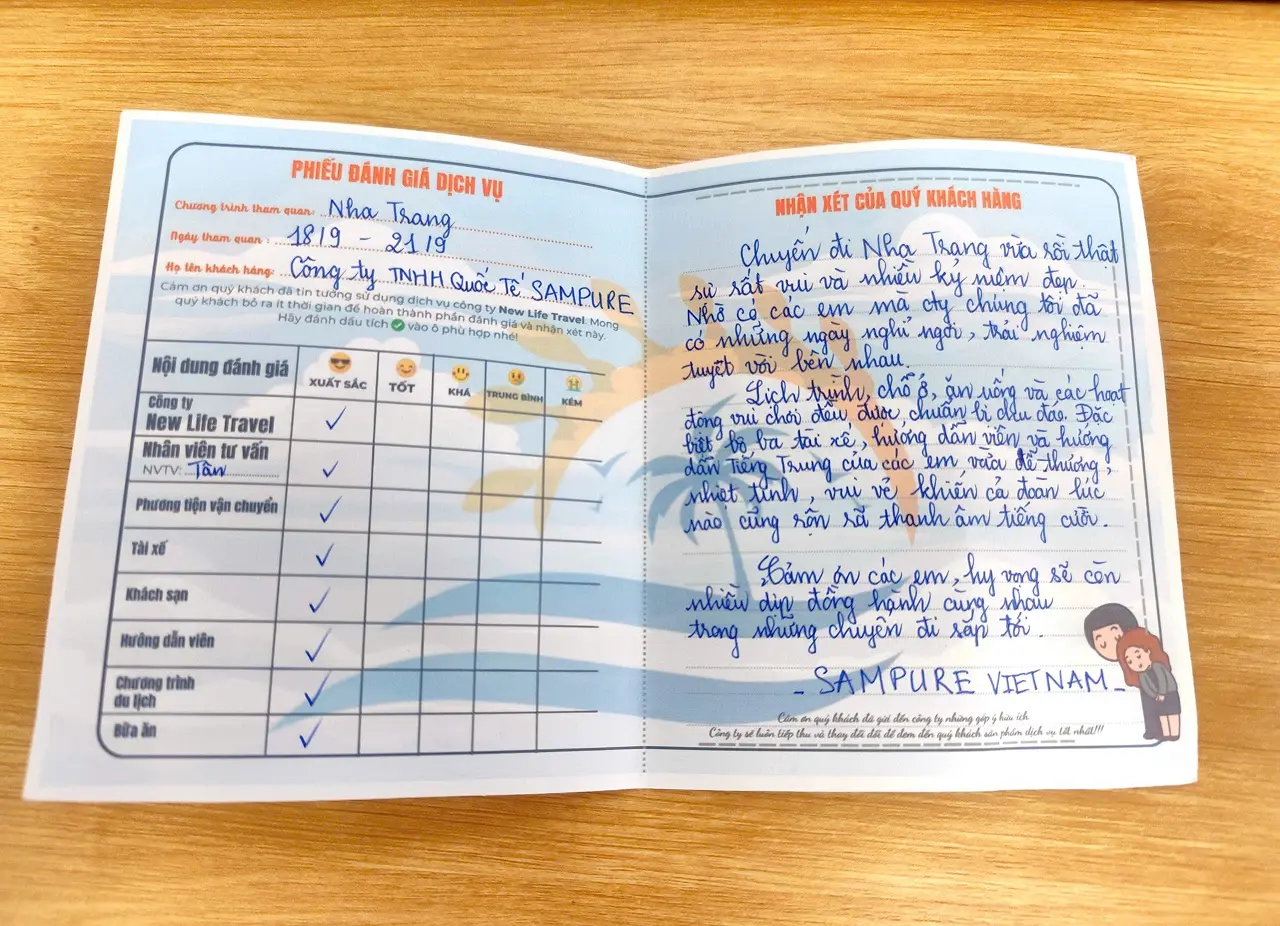 PHIẾU ĐÁNH GIÁ DỊCH VỤ
Chương trình tham quan: Nha Trang
Ngày tham quan : 18/9 - 21/9
Họ tên khách hàng: Công ty TNHH Quốc Tế SAMPURE
Cảm ơn quý khách đã tin tưởng sử dụng dịch vụ công ty New Life Travel. Mong
quý khách bỏ ra ít thời gian để hoàn thành phần đánh giá và nhận xét này.
Hãy đánh dấu tích ✓ vào ô phù hợp nhé!
Nội dung đánh giá XUẤT SẮC TỐT KHÁ TRUNG BÌNH KÉM
Công ty
New Life Travel ✓
Nhân viên tư vấn
NVTV: Tân ✓
Phương tiện vận chuyển ✓
Tài xế ✓
Khách sạn ✓
Hướng dẫn viên ✓
Chương trình
du lịch ✓
Bữa ăn ✓
NHẬN XÉT CỦA QUÝ KHÁCH HÀNG
Chuyến đi Nha Trang vừa rồi thật
sự rất vui và nhiều kỷ niệm đẹp.
Nhờ có các em mà cty chúng tôi đã
có những ngày nghỉ ngơi, trải nghiệm
tuyệt vời bên nhau.
Lịch trình, chỗ ở, ăn uống và các hoạt
động vui chơi đều được chuẩn bị chu đáo. Đặc
biệt bộ ba tài xế, hướng dẫn viên và hướng
dẫn Tiếng Trung của các em vừa dễ thương,
nhiệt tình, vui vẻ khiến cả đoàn lúc
nào cũng rộn rã thanh âm tiếng cười.
Cảm ơn các em, hy vọng sẽ còn
nhiều dịp đồng hành cùng nhau
trong những chuyến đi sắp tới.
- SAMPURE VIETNAM -
Cảm ơn quý khách đã gửi đến công ty những góp ý hữu ích
Công ty sẽ luôn tiếp thu và thay đổi để đem đến quý khách sản phẩm dịch vụ tốt nhất!!!